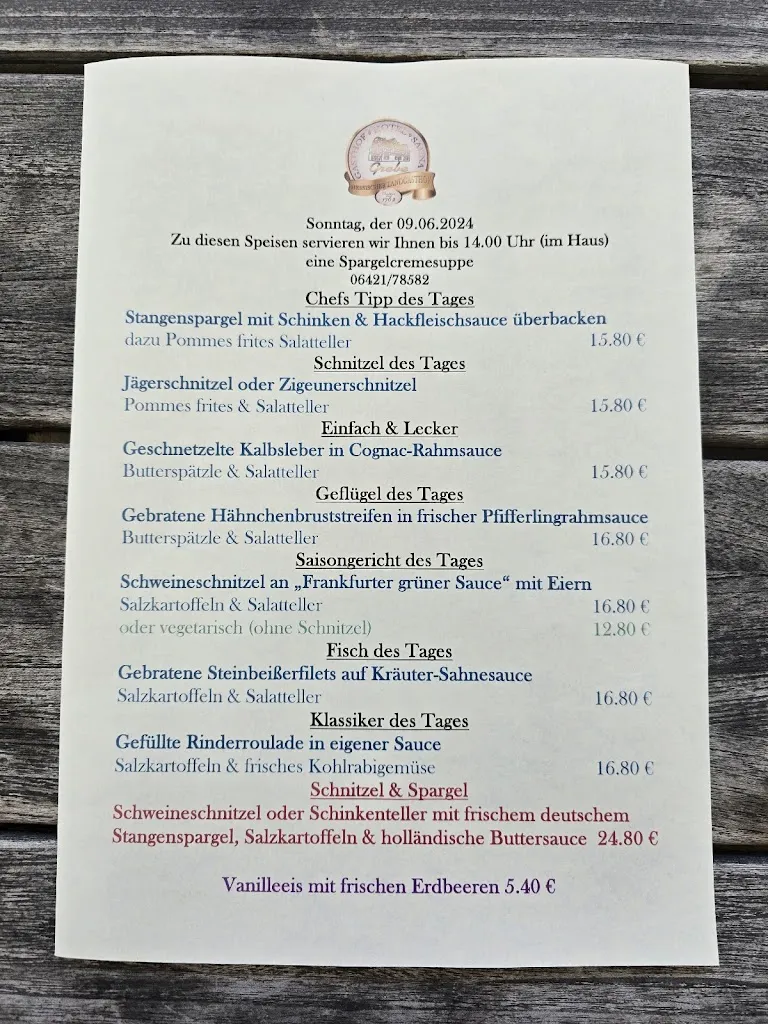 GASTHOF HOTEL SAUNA
Grebe
Sonntag, der 09.06.2024
Zu diesen Speisen servieren wir Ihnen bis 14.00 Uhr (im Haus)
eine Spargelcremesuppe
06421/78582
Chefs Tipp des Tages
Stangenspargel mit Schinken & Hackfleischsauce überbacken
dazu Pommes frites Salatteller 15.80 €
Schnitzel des Tages
Jägerschnitzel oder Zigeunerschnitzel
Pommes frites & Salatteller 15.80 €
Einfach & Lecker
Geschnetzelte Kalbsleber in Cognac-Rahmsauce
Butterspätzle & Salatteller 15.80 €
Geflügel des Tages
Gebratene Hähnchenbruststreifen in frischer Pfifferlingrahmsauce
Butterspätzle & Salatteller 16.80 €
Saisongericht des Tages
Schweineschnitzel an „Frankfurter grüner Sauce“ mit Eiern
Salzkartoffeln & Salatteller 16.80 €
oder vegetarisch (ohne Schnitzel) 12.80 €
Fisch des Tages
Gebratene Steinbeißerfilets auf Kräuter-Sahnesauce
Salzkartoffeln & Salatteller 16.80 €
Klassiker des Tages
Gefüllte Rinderroulade in eigener Sauce
Salzkartoffeln & frisches Kohlrabigemüse 16.80 €
Schnitzel & Spargel
Schweineschnitzel oder Schinkenteller mit frischem deutschem
Stangenspargel, Salzkartoffeln & holländische Buttersauce 24.80 €
Vanilleeis mit frischen Erdbeeren 5.40 €